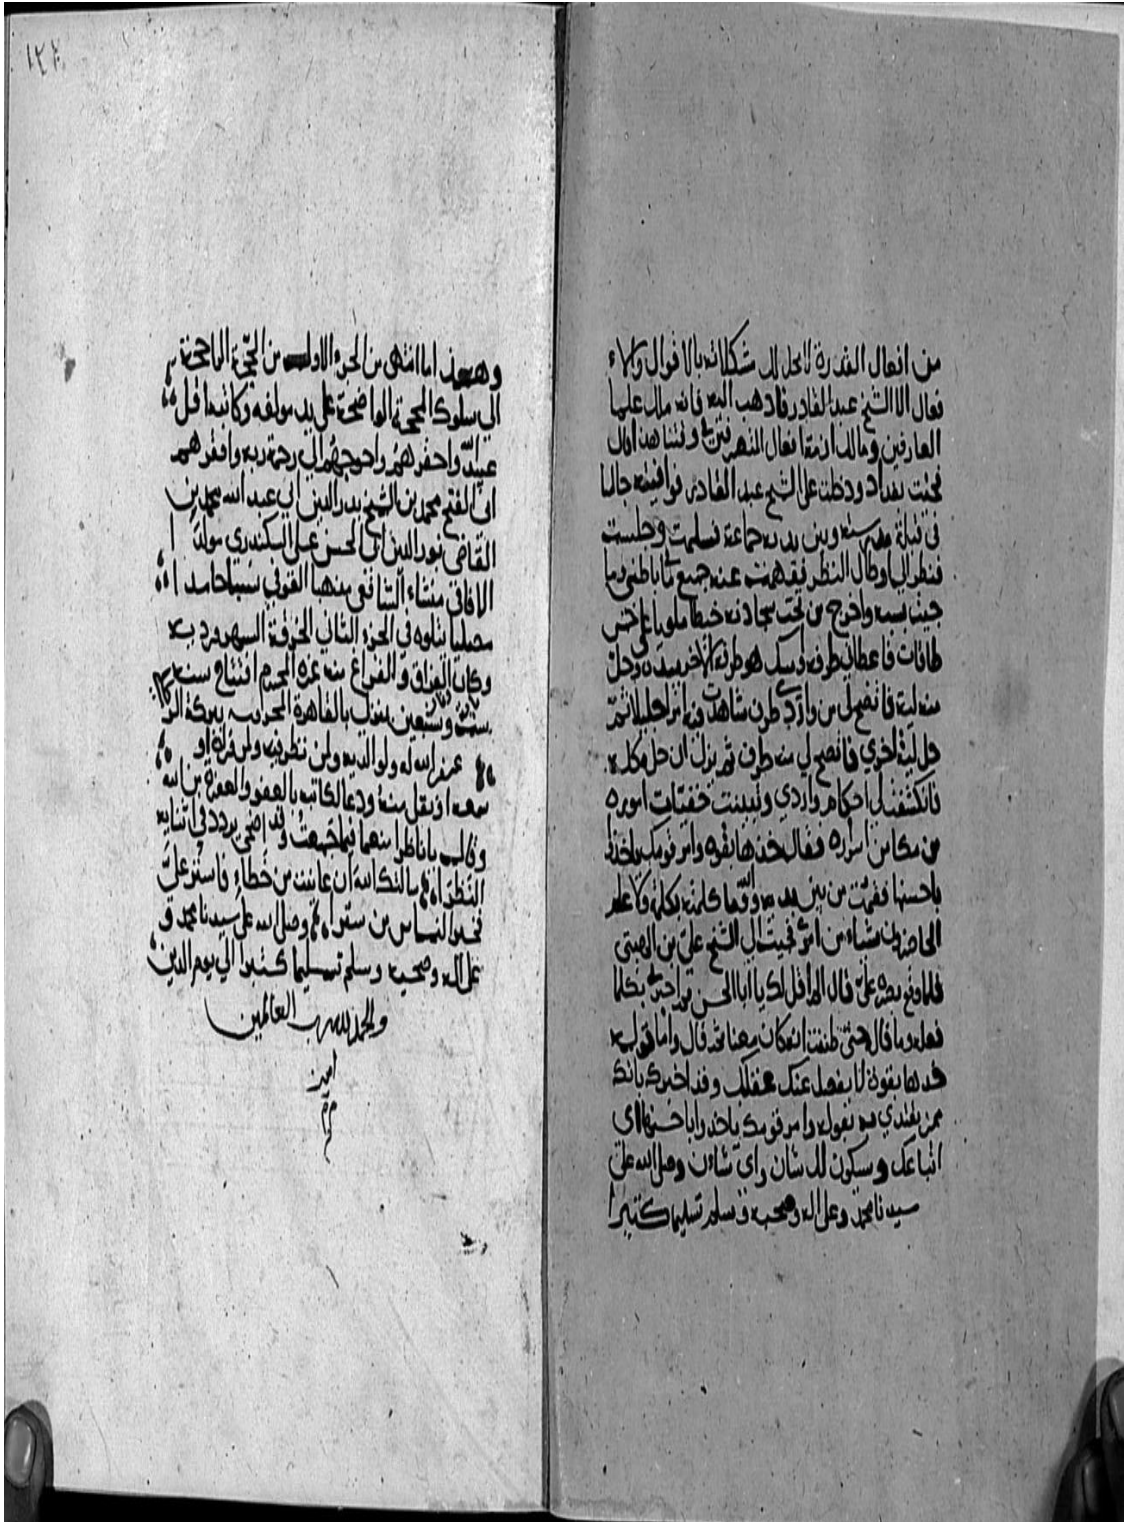 من افعال القدرة لا يحل لك شكلاته بالاقوال ولاء
فعال الا الشيخ عبد القادر فاذهب اليه فانه ملك علما
العارفين ومالك ازمة افعال المتصرفين في وقتنا هذا قال
فجئت بغداد ودخلت على الشيخ عبد القادر فوافيته جالسا
في قبلة مدرسته وبين يديه جماعة فسلمت وجلست
فنظر الي وطال النظر ففهمت عنه جميع ما باطني
واخرج من تحت سجادته خيطا ملويا على خمس
طاقات فاعطاني طرفه وامسك هو طرفه الاخر بيده وحل
منه لية فاتضح لي من واردي طرف شاهدت فيه امرا جليلا ثم
حل لية اخري فاتضح لي منه طرف ثم يزل ان حل كله
فانكشف لي احكام واردي وتبينت خفيات اموره
من مكامن اسراره فقال خذها بقوة وامر قومك ياخذوا
باحسنها فقمت من بين يديه والله ما كلمته بكلمة ولا علم
الحاضرون شيئا من امري فجيت الي الشيخ علي بن الهيتي
فلما وقع بصره علي قال الم اقل لك يا ابا الحسن بكلما
فعل وما قال حتى ظننت انه كان معنا ثم قال واما قوله
خذها بقوة لا يغفل عنك عقلك وقد اخبرك بانك
ممن يقتدي به بقوله وامر قومك ياخذوا باحسنها اي
اتباعك وسيكون لك شان واي شان وصلى الله على
سيدنا محمد وعلى اله وصحبه وسلم تسليما كثيرا
١٢٢
وهذا ما انتهى من الجزء الاول من الحجة الراجحة
الي سلوك المحجة الواضحة على يد مولفه وكاتبه اقل
عبيد الله واحقرهم واحوجهم الي رحمة ربه وافقرهم
ابي الفتح محمد بن الشيخ بدر الدين ابي عبد الله محمد بن
القاضي نور الدين ابي الحسن علي السكندري مولدا
الافاقي منشاء الشافعي مذهبا العوفي نسبا حامدا
مصليا يتلوه في الجزء الثاني الخرقة السهروردية
وكان الفراغ منه غرة المحرم افتتاح سنة
ست وسبعين بمنزلي بالقاهرة المحروسة ببركة الرطلي
غفر الله له ولوالديه ولمن نظر فيه ولمن قراه او
سمعه او نقل منه ودعا لكاتبه بالعفو والمغفرة من الله
وقال يا ناظرا منعما فيما جمعت وقد اضحى يردد في اثنايه
النظرا سالتك الله ان عاينت من خطاء فاستر علي
فخير الناس من سترا ثم وصل الله على سيدنا محمد و
على اله وصحبه وسلم تسليما كثيرا الي يوم الدين
والحمد لله رب العالمين
امين